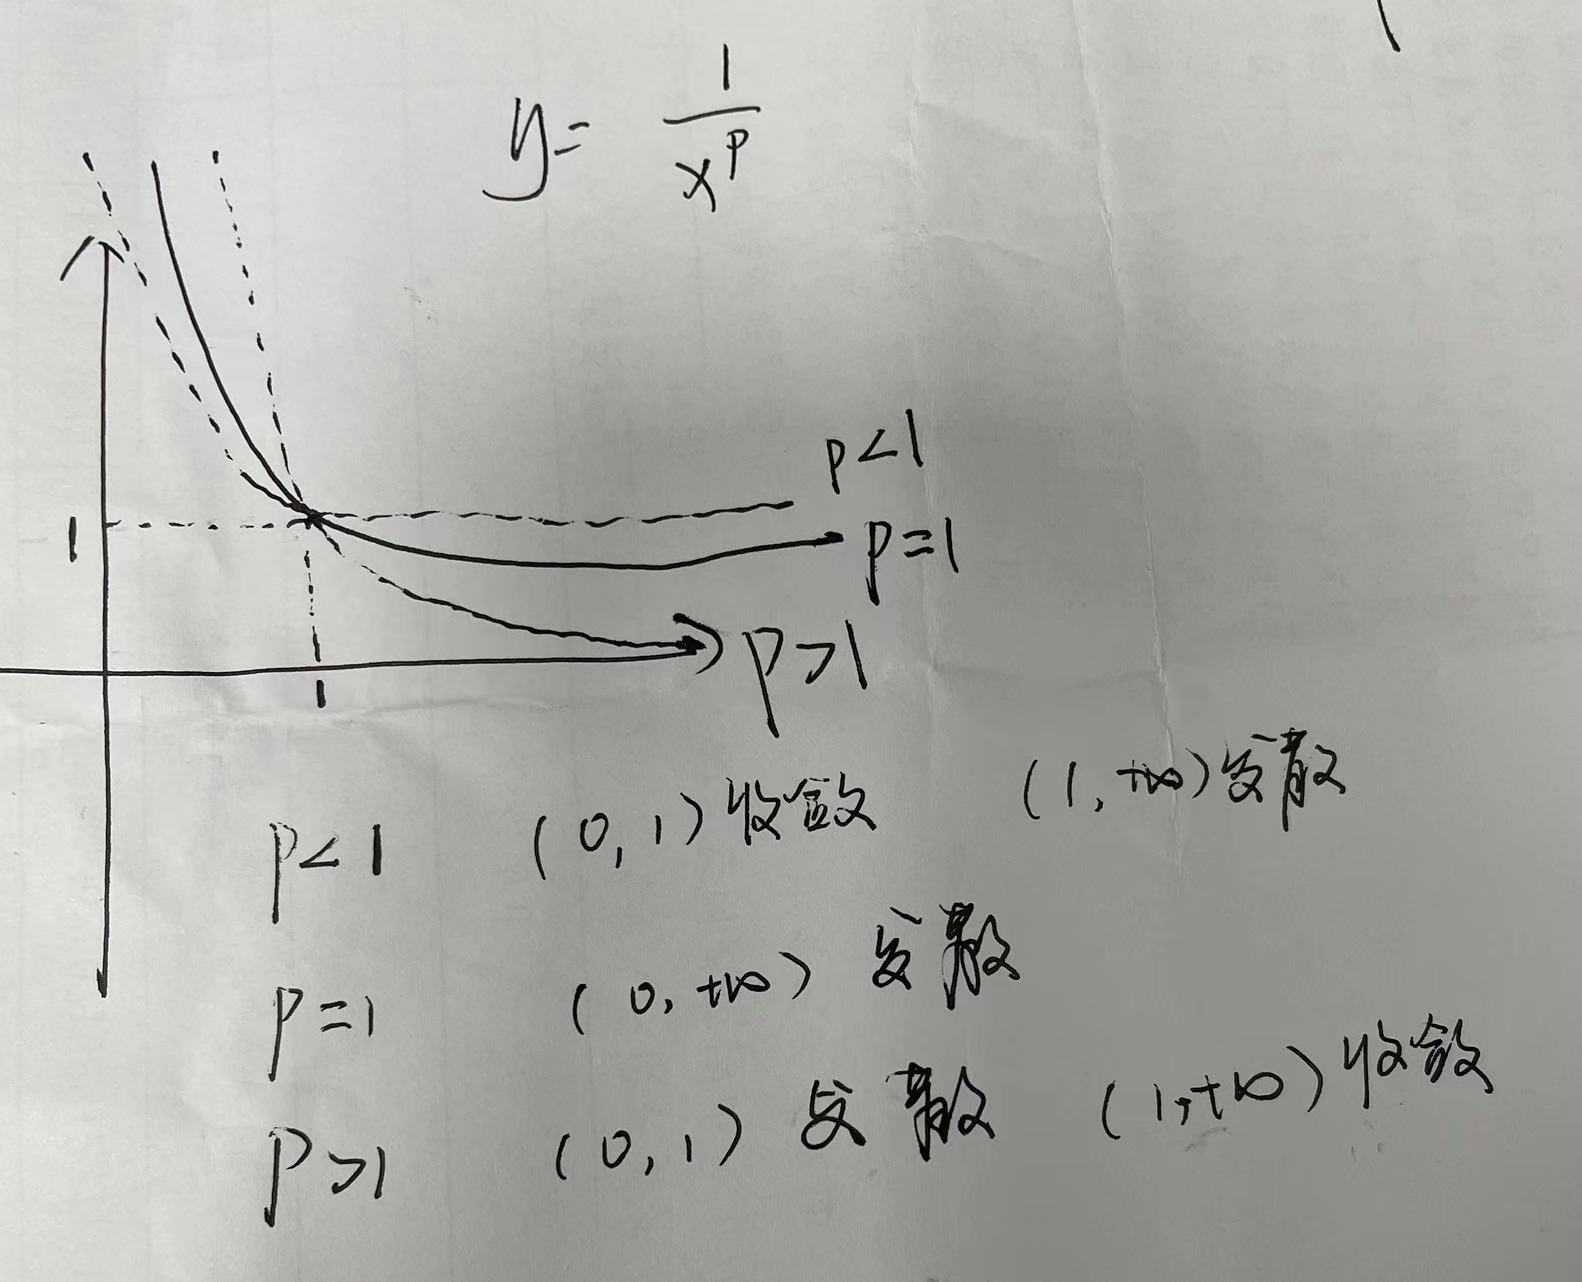 y= 1/x^p
p<1
1
p=1
p>1
1
p<1 (0,1)收敛 (1,+∞)发散
p=1 (0,+∞)发散
p>1 (0,1)发散 (1,+∞)收敛